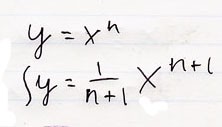 y = xⁿ
∫y = 1/(n+1) xⁿ⁺¹